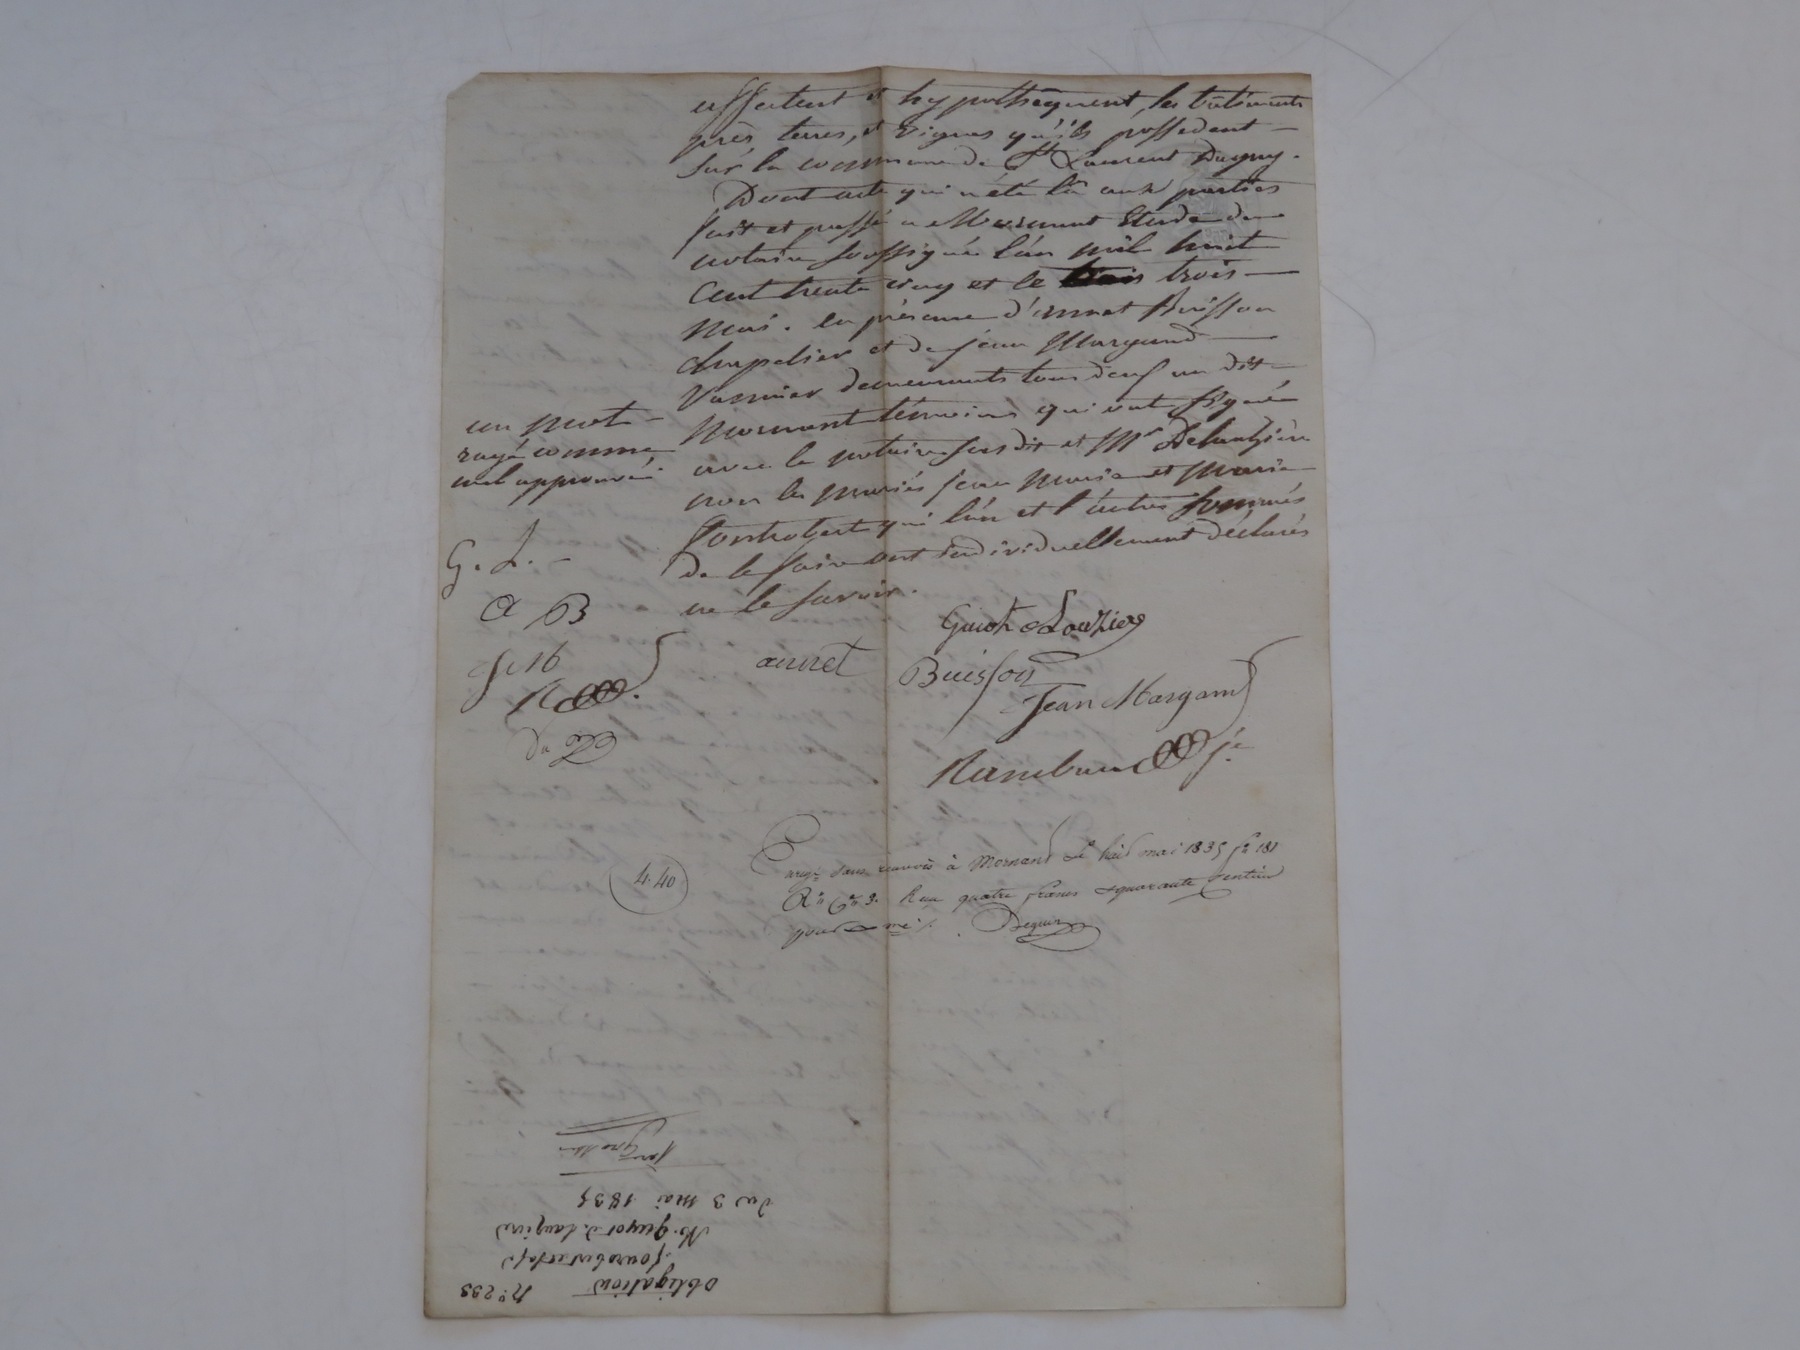 affectent et hypothèquent, les bâtiments
près, terres, et vignes qu'ils possedent —
sur la commune de St Laurent Dagny.
Dont acte qui a été lû aux parties
fait et passé a Mornant Etude du
notaire soussigné l'an mil huit
cent trente cinq et le trois —
Mai. en présence d'annet Buisson
chapelier et de jean Margand —
Vannier demeurants tous deux au dit —
Mornant témoins qui ont signé
avec le notaire susdit et Mr Delauzière
non les mariés jean marie et marie
qui l'un et l'autre sommés
de le faire ont individuellement déclarés
ne le savoir.
un mot —
rayé comme
nul approuvé.
G. L. —
A B
J M
R
Guiot Lauziere
annet Buisson
Jean Margand
Rambaud je
4.40
Enregé sans renvois à Mornant Le huit mai 1835 fo 181
Ro Ces 3. Reçu quatre francs quarante centimes
Dequin
obligation
No 233
Mr. guyot d. lauzière
Du 3 mai 1835